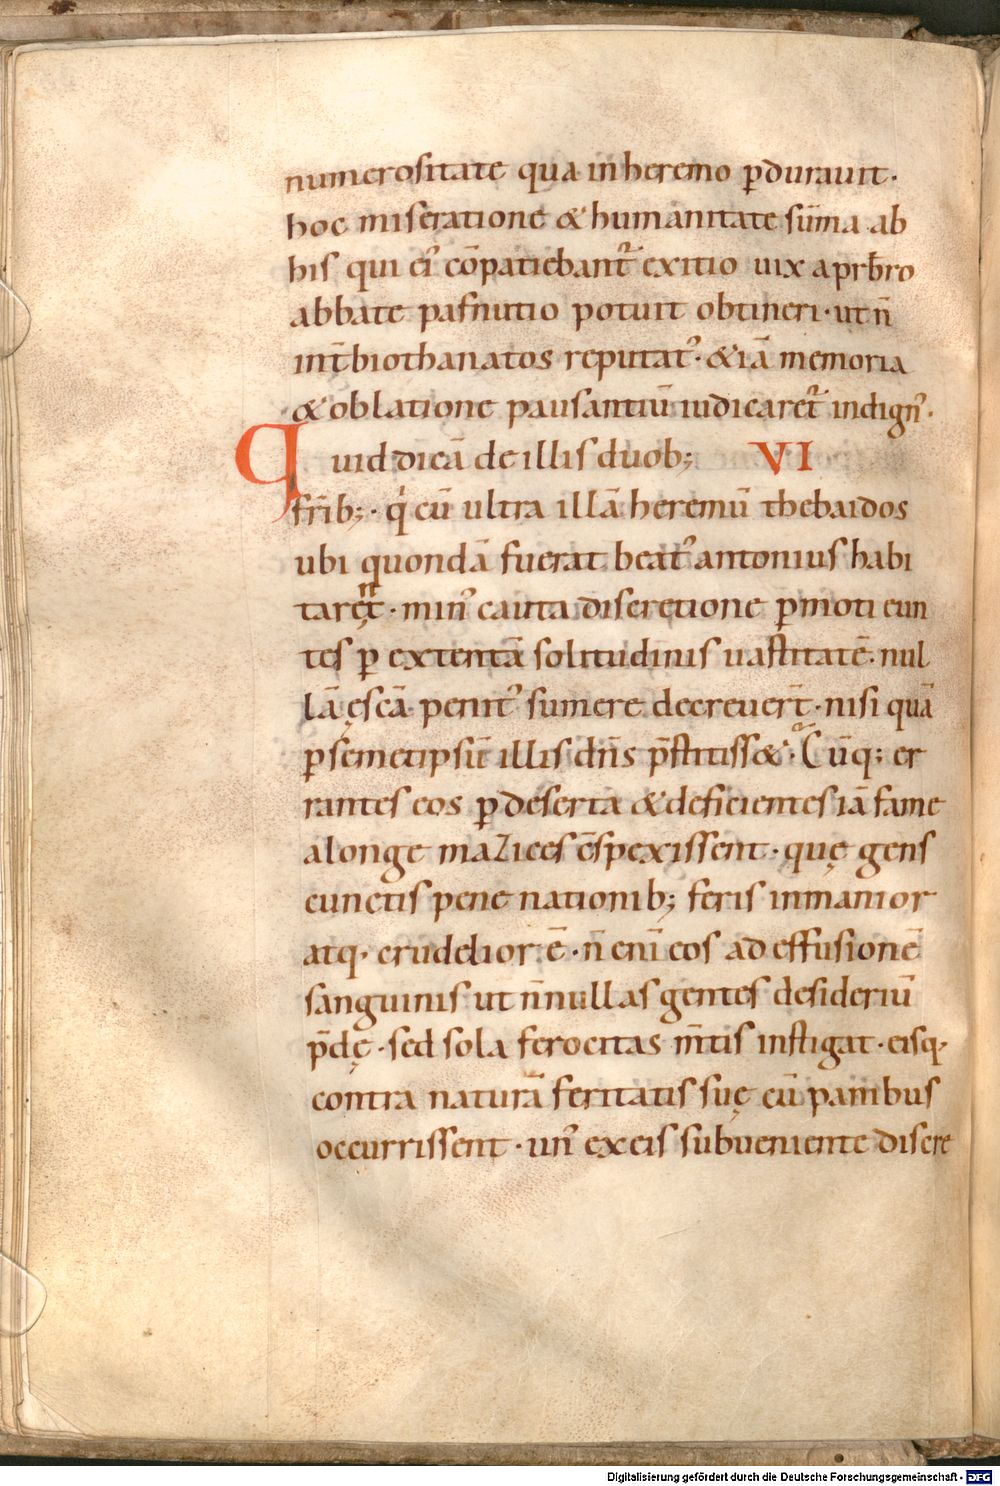 numerositate qua inheremo ꝑdurauit·
hoc miseratione &humanitate sūma ab
his qui ei᾽ cōpatiebant᾽ exitio uix aprb̄ro
abbate pafnutio potuit obtineri· ut n̄
int̄ biothanatos reputat᾽· &iā memoria
& oblatione pausantiū iudicaret᾽ indign᾽·
Quid dicā de illis duob; VI
fr̄ib;· qͥ cū ultra illā heremū thebaidos
ubi quondā fuerat beat᾽ antonius habi
tarent· min᾽ cauta discretione ꝑmoti eun
tes ꝑ extentā solitudinis uastitatē· nul
lā ęscā penit᾽ sumere decreuer̄t· nisi quā
ꝑ semetipsū illis dn̄s p̄stitiss&· Cūq; er
rantes eos ꝑ deserta &deficientes iā fame
alonge mazices c̄spexissent· quę gens
cunctis pene nationib; feris inmanior
atq· crudelior ē· n̄ eni᾽ eos ad effusionē
sanguinis ut n̄nullas gentes desideriū
p̄dę· sed sola ferocitas m̄tis instigat· eisq·
contra naturā feritatis suę cū panibus
occurrissent· un᾽ ex eis subueniente discre
Digitalisierung gefördert durch die Deutsche Forschungsgemeinschaft - DFG